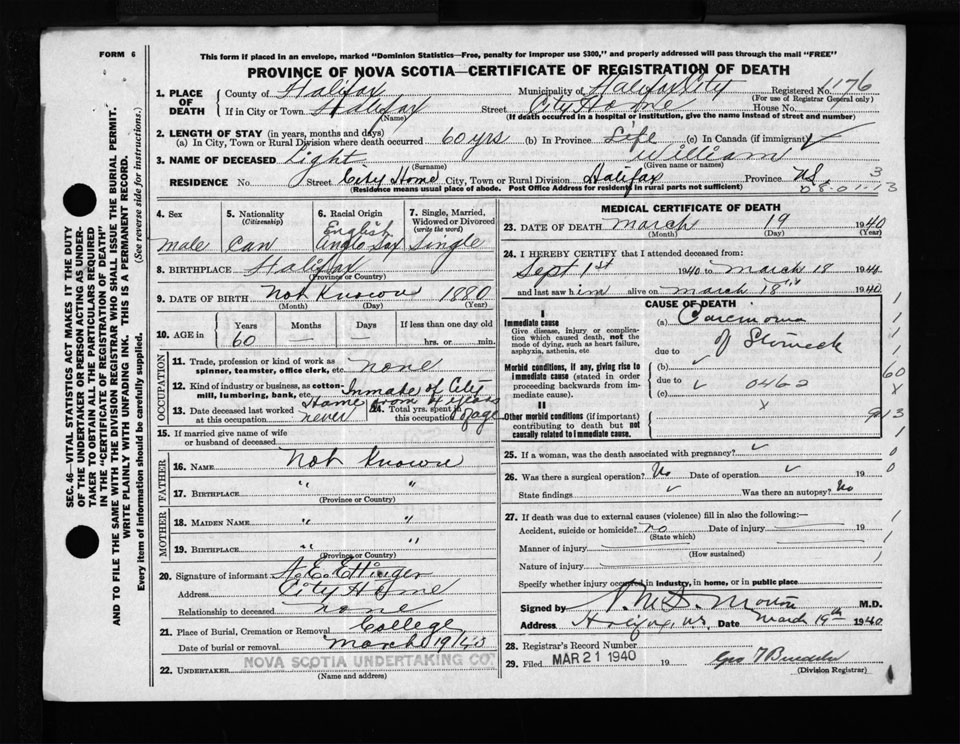 FORM 6
This form if placed in an envelope, marked "Dominion Statistics—Free, penalty for improper use $300," and properly addressed will pass through the mail "FREE"
PROVINCE OF NOVA SCOTIA—CERTIFICATE OF REGISTRATION OF DEATH
SEC. 46—VITAL STATISTICS ACT MAKES IT THE DUTY
OF THE UNDERTAKER OR PERSON ACTING AS UNDER-
TAKER TO OBTAIN ALL THE PARTICULARS REQUIRED
IN THE "CERTIFICATE OF REGISTRATION OF DEATH"
AND TO FILE THE SAME WITH THE DIVISION REGISTRAR WHO SHALL ISSUE THE BURIAL PERMIT.
WRITE PLAINLY WITH UNFADING INK. THIS IS A PERMANENT RECORD.
Every item of information should be carefully supplied. (See reverse side for instructions.)
1. PLACE OF DEATH County of Halifax Municipality of Halifax City Registered No. 1176
(For use of Registrar General only)
If in City or Town Halifax Street City Home House No.
(Name) (If death occurred in a hospital or institution, give the name instead of street and number)
2. LENGTH OF STAY (in years, months and days)
(a) In City, Town or Rural Division where death occurred 60 yrs (b) In Province Life (c) In Canada (if immigrant)
3. NAME OF DECEASED Light William
(Surname) (Given name or names)
RESIDENCE No. Street City Home City, Town or Rural Division Halifax Province N.S. 3
(Residence means usual place of abode. Post Office Address for residents in rural parts not sufficient) 08-01-13
4. Sex 5. Nationality 6. Racial Origin 7. Single, Married, Widowed or Divorced
(Citizenship) (write the word)
male Can English Anglo Sax Single
8. BIRTHPLACE Halifax
(Province or Country)
9. DATE OF BIRTH Not Known 1880
(Month) (Day) (Year)
10. AGE in Years Months Days If less than one day old
60 — — hrs. or min.
OCCUPATION
11. Trade, profession or kind of work as
spinner, teamster, office clerk, etc. none
12. Kind of industry or business, as cotton-
mill, lumbering, bank, etc. Inmate of City
Home from 4 years of age
13. Date deceased last worked at this occupation never 14. Total yrs. spent in this occupation
15. If married give name of wife
or husband of deceased
FATHER
16. NAME Not Known
17. BIRTHPLACE " "
(Province or Country)
MOTHER
18. MAIDEN NAME " "
19. BIRTHPLACE " "
(Province or Country)
20. Signature of informant A. E. Ettinger
Address City Home
Relationship to deceased none
21. Place of Burial, Cremation or Removal College
Date of burial or removal March 19/40
22. UNDERTAKER NOVA SCOTIA UNDERTAKING CO
(Name and address)
MEDICAL CERTIFICATE OF DEATH
23. DATE OF DEATH March 19 1940
(Month) (Day) (Year)
24. I HEREBY CERTIFY that I attended deceased from:
Sept 1st 1940 to March 18 1944
and last saw him alive on March 18th 1940
CAUSE OF DEATH
I
Immediate cause (a) Carcinoma
Give disease, injury or complication which caused death, not the mode of dying, such as heart failure, asphyxia, asthenia, etc of Stomach
due to
Morbid conditions, if any, giving rise to immediate cause (stated in order proceeding backwards from immediate cause). (b)
due to 0462
(c)
x
II
Other morbid conditions (if important) contributing to death but not causally related to immediate cause.
1
1
1
1
60
x
913
1
0
0
1
1
1
25. If a woman, was the death associated with pregnancy?
26. Was there a surgical operation? No Date of operation 19
State findings Was there an autopsy? No
27. If death was due to external causes (violence) fill in also the following:—
Accident, suicide or homicide? no Date of injury 19
(State which)
Manner of injury
(How sustained)
Nature of injury
Specify whether injury occurred in industry, in home, or in public place
Signed by Morton M.D.
Address Halifax, N.S. Date March 19th 1940
28. Registrar's Record Number
29. Filed MAR 21 1940 19
(Division Registrar)